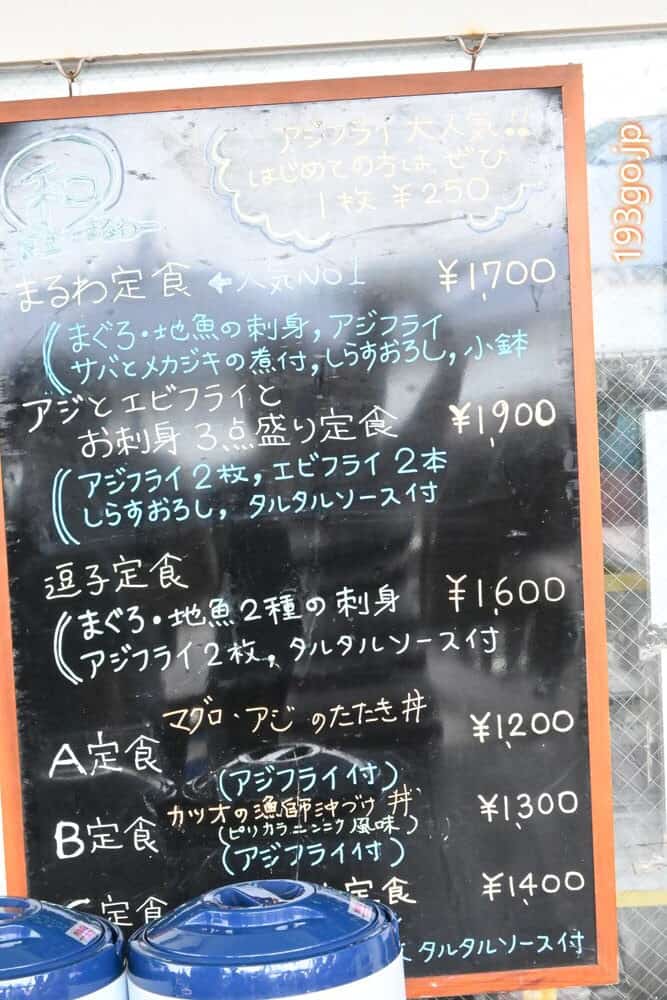 アジフライ 大人気!!
はじめての方は ぜひ
1枚 ¥250
193go.jp
和
まるわ定食 ←人気NO1 ¥1,700
まぐろ・地魚の刺身, アジフライ
サバとメカジキの煮付, しらすおろし, 小鉢
アジと エビフライと
お刺身 3点盛り定食 ¥1,900
アジフライ 2枚, エビフライ 2本
しらすおろし, タルタルソース付
逗子定食 ¥1,600
まぐろ・地魚2種の刺身
アジフライ2枚, タルタルソース付
A定食 マグロ・アジ のたたき丼 ¥1,200
(アジフライ付)
B定食 カツオの漁師沖づけ丼 ¥1,300
(ピリカラニンニク風味)
(アジフライ付)
定食 定食 ¥1,400
タルタルソース付